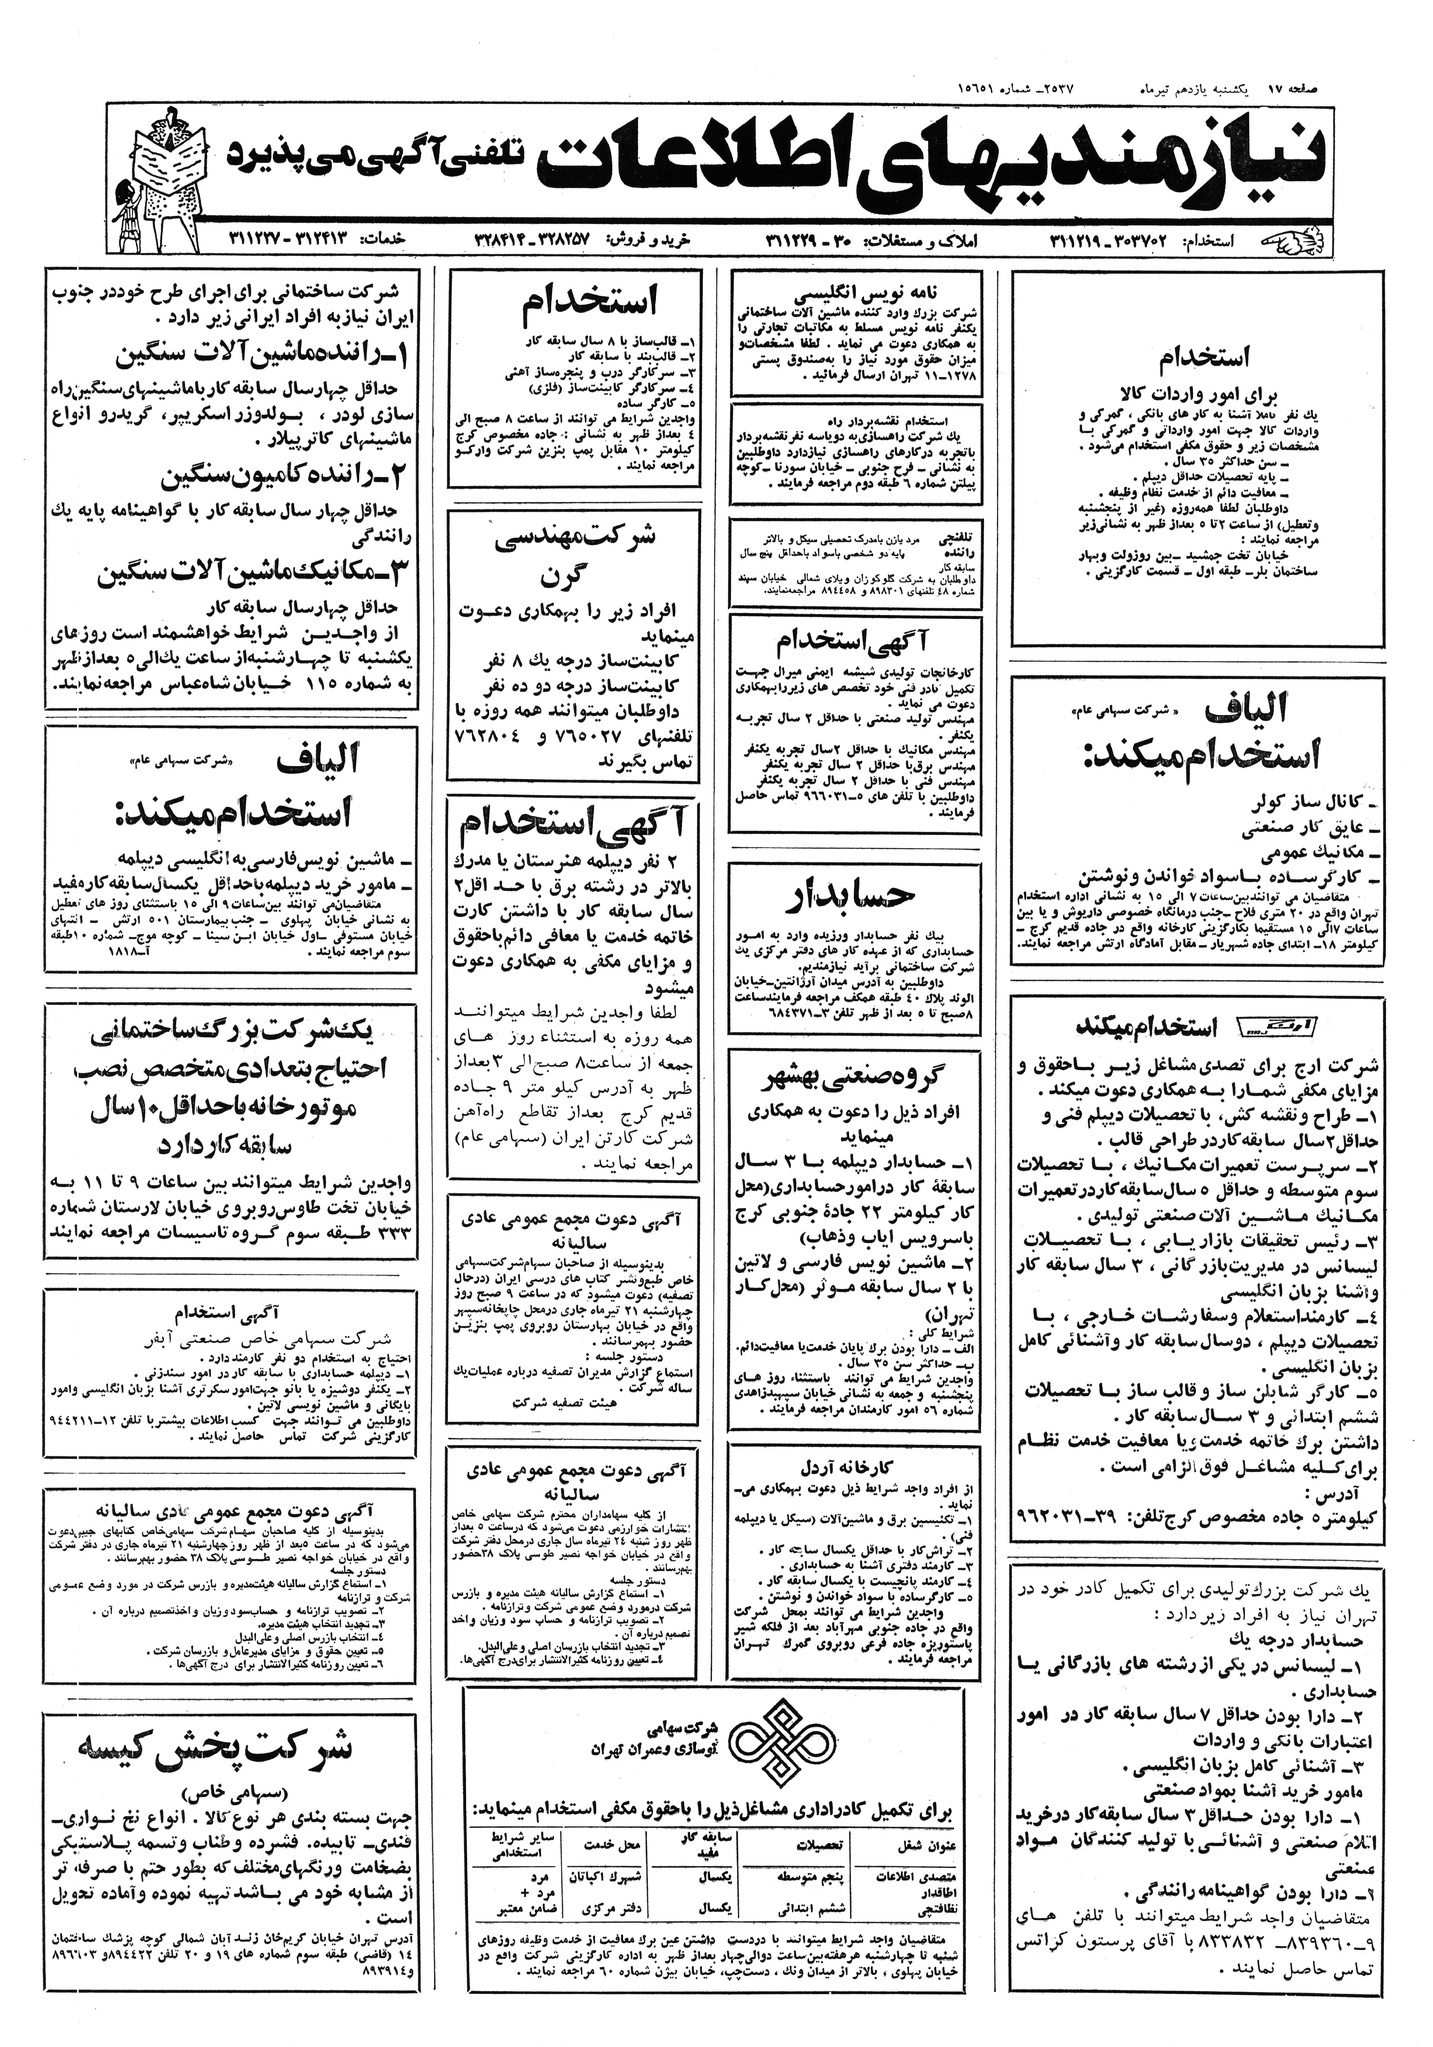 صفحه ۱۷ یکشنبه یازدهم تیرماه ۲۵۳۷ـ شماره ۱۵۶۵۱
نیازمندیهای اطلاعات تلفنی آگهی می‌پذیرد
استخدام: ۳۰۳۷۰۲ـ۳۱۱۲۱۹ املاک و مستغلات: ۳۰ـ۳۱۱۲۲۹ خرید و فروش: ۳۲۸۲۵۷ـ۳۲۸۴۱۴ خدمات: ۳۱۲۴۱۳ـ۳۱۱۲۲۷
استخدام
برای امور واردات کالا
یک نفر کاملا آشنا به کار های بانکی ، گمرکی و
واردات کالا جهت امور وارداتی و گمرکی با
مشخصات زیر و حقوق مکفی استخدام می‌شود .
ـ سن حداکثر ۳۵ سال .
ـ پایه تحصیلات حداقل دیپلم .
ـ معافیت دائم از خدمت نظام وظیفه .
داوطلبان لطفا همه‌روزه (غیر از پنجشنبه
وتعطیل) از ساعت ۲ تا ۵ بعداز ظهر به نشانی زیر
مراجعه نمایند :
خیابان تخت جمشید ـ بین روزولت وبهار
ساختمان بلر ـ طبقه اول ـ قسمت کارگزینی .
الیاف « شرکت سهامی عام»
استخدام میکند:
ـ کانال ساز کولر
ـ عایق کار صنعتی
ـ مکانیک عمومی
ـ کارگر ساده باسواد خواندن و نوشتن
متقاضیان می توانند بین‌ساعات ۷ الی ۱۵ به نشانی اداره استخدام
تهران واقع در ۲۰ متری فلاح ـ جنب درمانگاه خصوصی داریوش و یا بین
ساعات ۷ الی ۱۵ مستقیما بکارگزینی کارخانه واقع در جاده قدیم کرج ـ
کیلومتر ۱۸ـ ابتدای جاده شهریار ـ مقابل آمادگاه ارتش مراجعه نمایند.
ارج استخدام میکند
شرکت ارج برای تصدی مشاغل زیر باحقوق و
مزایای مکفی شمارا به همکاری دعوت میکند .
۱ـ طراح ونقشه کش، با تحصیلات دیپلم فنی و
حداقل ۲ سال سابقه کار در طراحی قالب .
۲ـ سرپرست تعمیرات مکانیک ، با تحصیلات
سوم متوسطه و حداقل ۵ سال سابقه کار در تعمیرات
مکانیک ماشین آلات صنعتی تولیدی .
۳ـ رئیس تحقیقات بازاریابی ، با تحصیلات
لیسانس در مدیریت بازرگانی ، ۳ سال سابقه کار
وآشنا بزبان انگلیسی
۴ـ کارمند استعلام وسفارشات خارجی ، با
تحصیلات دیپلم ، دوسال سابقه کار وآشنائی کامل
بزبان انگلیسی .
۵ـ کارگر شابلن ساز و قالب ساز با تحصیلات
ششم ابتدائی و ۳ سال سابقه کار .
داشتن برک خاتمه خدمت ویا معافیت خدمت نظام
برای کلیه مشاغل فوق الزامی است .
آدرس :
کیلومتر ۵ جاده مخصوص کرج تلفن: ۳۹ـ۹۶۲۰۳۱
یک شرکت بزرگ تولیدی برای تکمیل کادر خود در
تهران نیاز به افراد زیر دارد :
حسابدار درجه یک
۱ـ لیسانس در یکی از رشته های بازرگانی یا
حسابداری .
۲ـ دارا بودن حداقل ۷ سال سابقه کار در امور
اعتبارات بانکی و واردات
۳ـ آشنائی کامل بزبان انگلیسی .
مامور خرید آشنا بمواد صنعتی
۱ـ دارا بودن حداقل ۳ سال سابقه کار درخرید
اقلام صنعتی و آشنائی با تولید کنندگان مواد
صنعتی
۲ـ دارا بودن گواهینامه رانندگی .
متقاضیان واجد شرایط میتوانند با تلفن های
۹ـ۸۳۹۳۶۰ـ ۸۳۳۸۳۲ با آقای پرستون کراتس
تماس حاصل نمایند .
نامه نویس انگلیسی
شرکت بزرک وارد کننده ماشین آلات ساختمانی
یکنفر نامه نویس مسلط به مکاتبات تجارتی را
به همکاری دعوت می نماید . لطفا مشخصات و
میزان حقوق مورد نیاز را به‌صندوق پستی
۱۲۷۸ـ۱۱ تهران ارسال فرمائید .
استخدام نقشه‌بردار راه
یک شرکت راهسازی به دویاسه نفر نقشه‌بردار
باتجربه درکارهای راهسازی نیازدارد داوطلبین
به نشانی ـ فرح جنوبی ـ خیابان سورنا ـ کوچه
پیلتن شماره ۶ طبقه دوم مراجعه فرمایند .
تلفنچی مرد یازن بامدرک تحصیلی سیکل و بالاتر
راننده پایه دو شخصی باسواد باحداقل پنج سال
سابقه کار
داوطلبان به شرکت گلوکوزان ویلای شمالی خیابان سپند
شماره ۴۸ تلفنهای ۸۹۸۳۰۱ و ۸۹۴۴۵۸ مراجعه‌نمایند.
آگهی استخدام
کارخانجات تولیدی شیشه ایمنی میرال جهت
تکمیل کادر فنی خود تخصص های زیر را بهمکاری
دعوت می نماید .
مهندس تولید صنعتی با حداقل ۲ سال تجربه
یکنفر .
مهندس مکانیک با حداقل ۲ سال تجربه یکنفر
مهندس برق با حداقل ۲ سال تجربه یکنفر
مهندس فنی با حداقل ۲ سال تجربه یکنفر
داوطلبین با تلفن های ۵ـ۹۶۶۰۳۱ تماس حاصل
فرمایند .
حسابدار
بیک نفر حسابدار ورزیده وارد به امور
حسابداری که از عهده کار های دفتر مرکزی یک
شرکت ساختمانی برآید نیازمندیم.
داوطلبین به آدرس میدان آرژانتین ـ خیابان
الوند پلاک ۴۰ طبقه همکف مراجعه فرمایند ساعت
۸ صبح تا ۵ بعد از ظهر تلفن ۳ـ۶۸۴۳۷۱
گروه صنعتی بهشهر
افراد ذیل را دعوت به همکاری
مینماید
۱ـ حسابدار دیپلمه با ۳ سال
سابقهٔ کار درامور حسابداری (محل
کار کیلومتر ۲۲ جادهٔ جنوبی کرج
باسرویس ایاب وذهاب)
۲ـ ماشین نویس فارسی و لاتین
با ۲ سال سابقه موثر (محل کار
تهران)
شرایط کلی :
الف ـ دارا بودن برک پایان خدمت یا معافیت دائم.
ب ـ حداکثر سن ۳۵ سال .
واجدین شرایط می توانند باستثناء روز های
پنجشنبه و جمعه به نشانی خیابان سپهبدزاهدی
شماره ۵۶ امور کارمندان مراجعه فرمایند .
کارخانه آردل
از افراد واجد شرایط ذیل دعوت بهمکاری می‌ـ
نماید .
۱ـ تکنسین برق و ماشین‌آلات (سیکل یا دیپلمه
فنی) .
۲ـ تراش‌کار با حداقل یکسال سابقه کار .
۳ـ کارمند دفتری آشنا به حسابداری .
۴ـ کارمند پانچیست با یکسال سابقه کار .
۵ـ کارگرساده با سواد خواندن و نوشتن .
واجدین شرایط می توانند بمحل شرکت
واقع در جاده جنوبی مهرآباد بعد از فلکه شیر
پاستوریزه جاده فرعی روبروی گمرک تهران
مراجعه فرمایند .
استخدام
۱ـ قالب‌ساز با ۸ سال سابقه کار
۲ـ قالب‌بند با سابقه کار
۳ـ سرکارگر درب و پنجره‌ساز آهنی
۴ـ سرکارگر کابینت‌ساز (فلزی)
۵ـ کارگر ساده
واجدین شرایط می توانند از ساعت ۸ صبح الی
۴ بعداز ظهر به نشانی : جاده مخصوص کرج
کیلومتر ۱۰ مقابل پمپ بنزین شرکت وارکو
مراجعه نمایند .
شرکت مهندسی
گرن
افراد زیر را بهمکاری دعوت
مینماید
کابینت‌ساز درجه یک ۸ نفر
کابینت‌ساز درجه دو ده نفر
داوطلبان میتوانند همه روزه با
تلفنهای ۷۶۵۰۲۷ و ۷۶۲۸۰۴
تماس بگیرند
آگهی استخدام
۲ نفر دیپلمه هنرستان یا مدرک
بالاتر در رشته برق با حد اقل ۲
سال سابقه کار با داشتن کارت
خاتمه خدمت یا معافی دائم باحقوق
و مزایای مکفی به همکاری دعوت
میشود
لطفا واجدین شرایط میتوانند
همه روزه به استثناء روز های
جمعه از ساعت ۸ صبح الی ۳ بعداز
ظهر به آدرس کیلو متر ۹ جاده
قدیم کرج بعداز تقاطع راه‌آهن
شرکت کارتن ایران (سهامی عام)
مراجعه نمایند .
آگهی دعوت مجمع عمومی عادی
سالیانه
بدینوسیله از صاحبان سهام‌شرکت‌سهامی
خاص طبع‌ونشر کتاب های درسی ایران (درحال
تصفیه) دعوت میشود که در ساعت ۹ صبح روز
چهارشنبه ۲۱ تیرماه جاری درمحل چاپخانه‌سپهر
واقع در خیابان بهارستان روبروی پمپ بنزین
حضور بهمرسانند .
دستور جلسه :
استماع گزارش مدیران تصفیه درباره عملیات‌یک
ساله شرکت .
هیئت تصفیه شرکت
آگهی دعوت مجمع عمومی عادی
سالیانه
از کلیه سهامداران محترم شرکت سهامی خاص
انتشارات خوارزمی دعوت می‌شود که درساعت ۵ بعداز
ظهر روز شنبه ۲۴ تیرماه سال جاری درمحل دفتر شرکت
واقع در خیابان خواجه نصیر طوسی پلاک ۳۸ حضور
بهم‌رسانند .
دستور جلسه
۱ـ استماع گزارش سالیانه هیئت مدیره و بازرس
شرکت درمورد وضع عمومی شرکت وترازنامه .
۲ـ تصویب ترازنامه و حساب سود وزیان واخذ
تصمیم درباره آن .
۳ـ تجدید انتخاب بازرسان اصلی وعلی‌البدل.
۴ـ تعیین روزنامه کثیرالانتشار برای‌درج آگهی‌ها.
شرکت سهامی
نوسازی وعمران تهران
برای تکمیل کادر اداری مشاغل ذیل را باحقوق مکفی استخدام مینماید:
عنوان شغل | تحصیلات | سابقه کار مفید | محل خدمت | سایر شرایط استخدامی
متصدی اطلاعات | پنجم متوسطه | یکسال | شهرک اکباتان | مرد
اطاقدار نظافتچی | ششم ابتدائی | یکسال | دفتر مرکزی | مرد + ضامن معتبر
متقاضیان واجد شرایط میتوانند با دردست داشتن عین برک معافیت از خدمت وظیفه روزهای
شنبه تا چهارشنبه هرهفته بین ساعت دوالی چهار بعداز ظهر به اداره کارگزینی شرکت واقع در
خیابان پهلوی ، بالاتر از میدان ونک ، دست‌چپ، خیابان بیژن شماره ۶۰ مراجعه نمایند .
شرکت ساختمانی برای اجرای طرح خود در جنوب
ایران نیاز به افراد ایرانی زیر دارد .
۱ـ راننده ماشین آلات سنگین
حداقل چهارسال سابقه کار با ماشینهای سنگین راه
سازی لودر ، بولدوزر اسکریپر، گریدر و انواع
ماشینهای کاترپیلار .
۲ـ راننده کامیون سنگین
حداقل چهار سال سابقه کار با گواهینامه پایه یک
رانندگی
۳ـ مکانیک ماشین آلات سنگین
حداقل چهارسال سابقه کار
از واجدین شرایط خواهشمند است روزهای
یکشنبه تا چهارشنبه از ساعت یک الی ۵ بعداز ظهر
به شماره ۱۱۵ خیابان شاه‌عباس مراجعه نمایند.
الیاف «شرکت سهامی عام»
استخدام میکند:
ـ ماشین نویس فارسی به انگلیسی دیپلمه
ـ مامور خرید دیپلمه باحداقل یکسال سابقه کار مفید
متقاضیان می توانند بین ساعات ۹ الی ۱۵ باستثنای روز های تعطیل
به نشانی خیابان پهلوی ـ جنب بیمارستان ۵۰۱ ارتش ـ انتهای
خیابان مستوفی ـ اول خیابان ابن سینا ـ کوچه موج ـ شماره ۱۰ طبقه
سوم مراجعه نمایند . آـ۱۸۱۸
یک شرکت بزرگ ساختمانی
احتیاج بتعدادی متخصص نصب
موتورخانه با حداقل ۱۰ سال
سابقه کار دارد
واجدین شرایط میتوانند بین ساعات ۹ تا ۱۱ به
خیابان تخت طاوس روبروی خیابان لارستان شماره
۳۳۳ طبقه سوم گروه تاسیسات مراجعه نمایند
آگهی استخدام
شرکت سهامی خاص صنعتی آبفر
احتیاج به استخدام دو نفر کارمند دارد .
۱ـ دیپلمه حسابداری با سابقه کار در امور سندزنی .
۲ـ یکنفر دوشیزه یا بانو جهت‌امور سکرتری آشنا بزبان انگلیسی وامور
بایگانی و ماشین نویسی لاتین .
داوطلبین می توانند جهت کسب اطلاعات بیشتر با تلفن ۱۲ـ۹۴۴۲۱۱
کارگزینی شرکت تماس حاصل نمایند .
آگهی دعوت مجمع عمومی عادی سالیانه
بدینوسیله از کلیه صاحبان سهام شرکت سهامی‌خاص کتابهای جیبی‌دعوت
می‌شود که در ساعت ۵بعد از ظهر روز چهارشنبه ۲۱ تیرماه جاری در دفتر شرکت
واقع در خیابان خواجه نصیر طوسی پلاک ۳۸ حضور بهم‌رسانند .
دستور جلسه
۱ـ استماع گزارش سالیانه هیئت‌مدیره و بازرس شرکت در مورد وضع عمومی
شرکت و ترازنامه
۲ـ تصویب ترازنامه و حساب‌سود وزیان واخذتصمیم درباره آن .
۳ـ تجدید انتخاب هیئت مدیره.
۴ـ انتخاب بازرس اصلی و علی‌البدل
۵ـ تعیین حقوق و مزایای مدیرعامل و بازرسان شرکت .
۶ـ تعیین روزنامه کثیرالانتشار برای درج آگهی‌ها .
شرکت پخش کیسه
(سهامی خاص)
جهت بسته بندی هر نوع کالا . انواع نخ نواری ـ
قندی ـ تابیده، فشرده و طناب وتسمه پلاستیکی
بضخامت ورنگهای مختلف که بطور حتم با صرفه تر
از مشابه خود می باشد تهیه نموده وآماده تحویل
است .
آدرس تهران خیابان کریم‌خان زند آبان شمالی کوچه پزشک ساختمان
۱۴ (قاضی) طبقه سوم شماره های ۱۹ و ۲۰ تلفن ۸۹۴۴۲۲و ۸۹۶۶۰۳
و۸۹۳۹۱۴